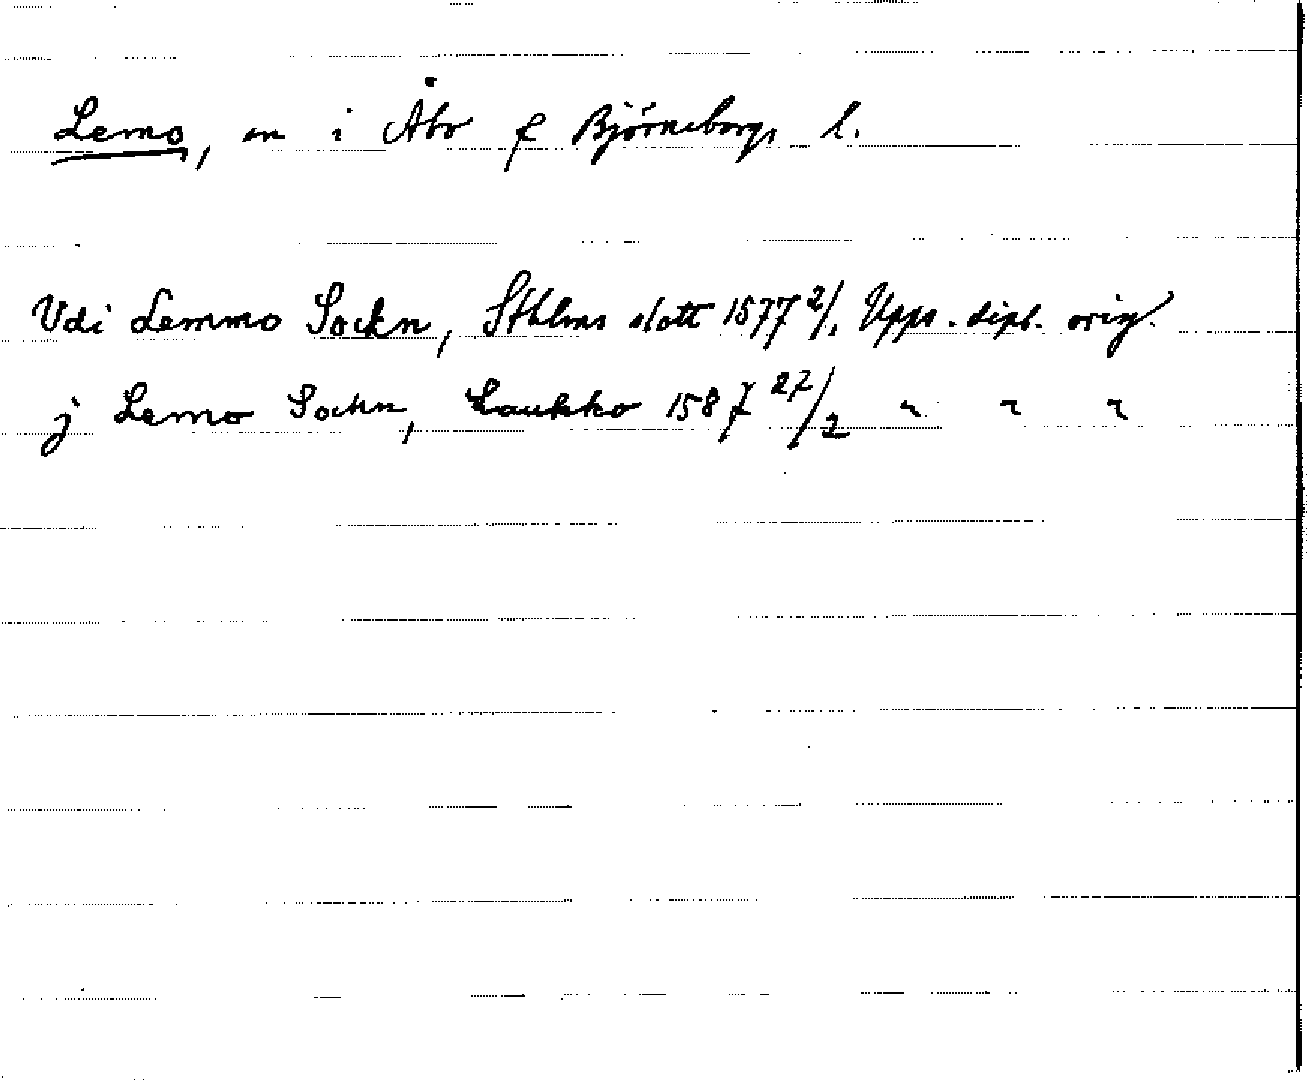 Lemo, sn i Åbo o Björneborgs l.
Vdi Lemmo Sockn, Sthlms slott 1577 2/1. Upps. dipl. orig.
j Lemo Sockn, Laukko 1587 27/2 " " "